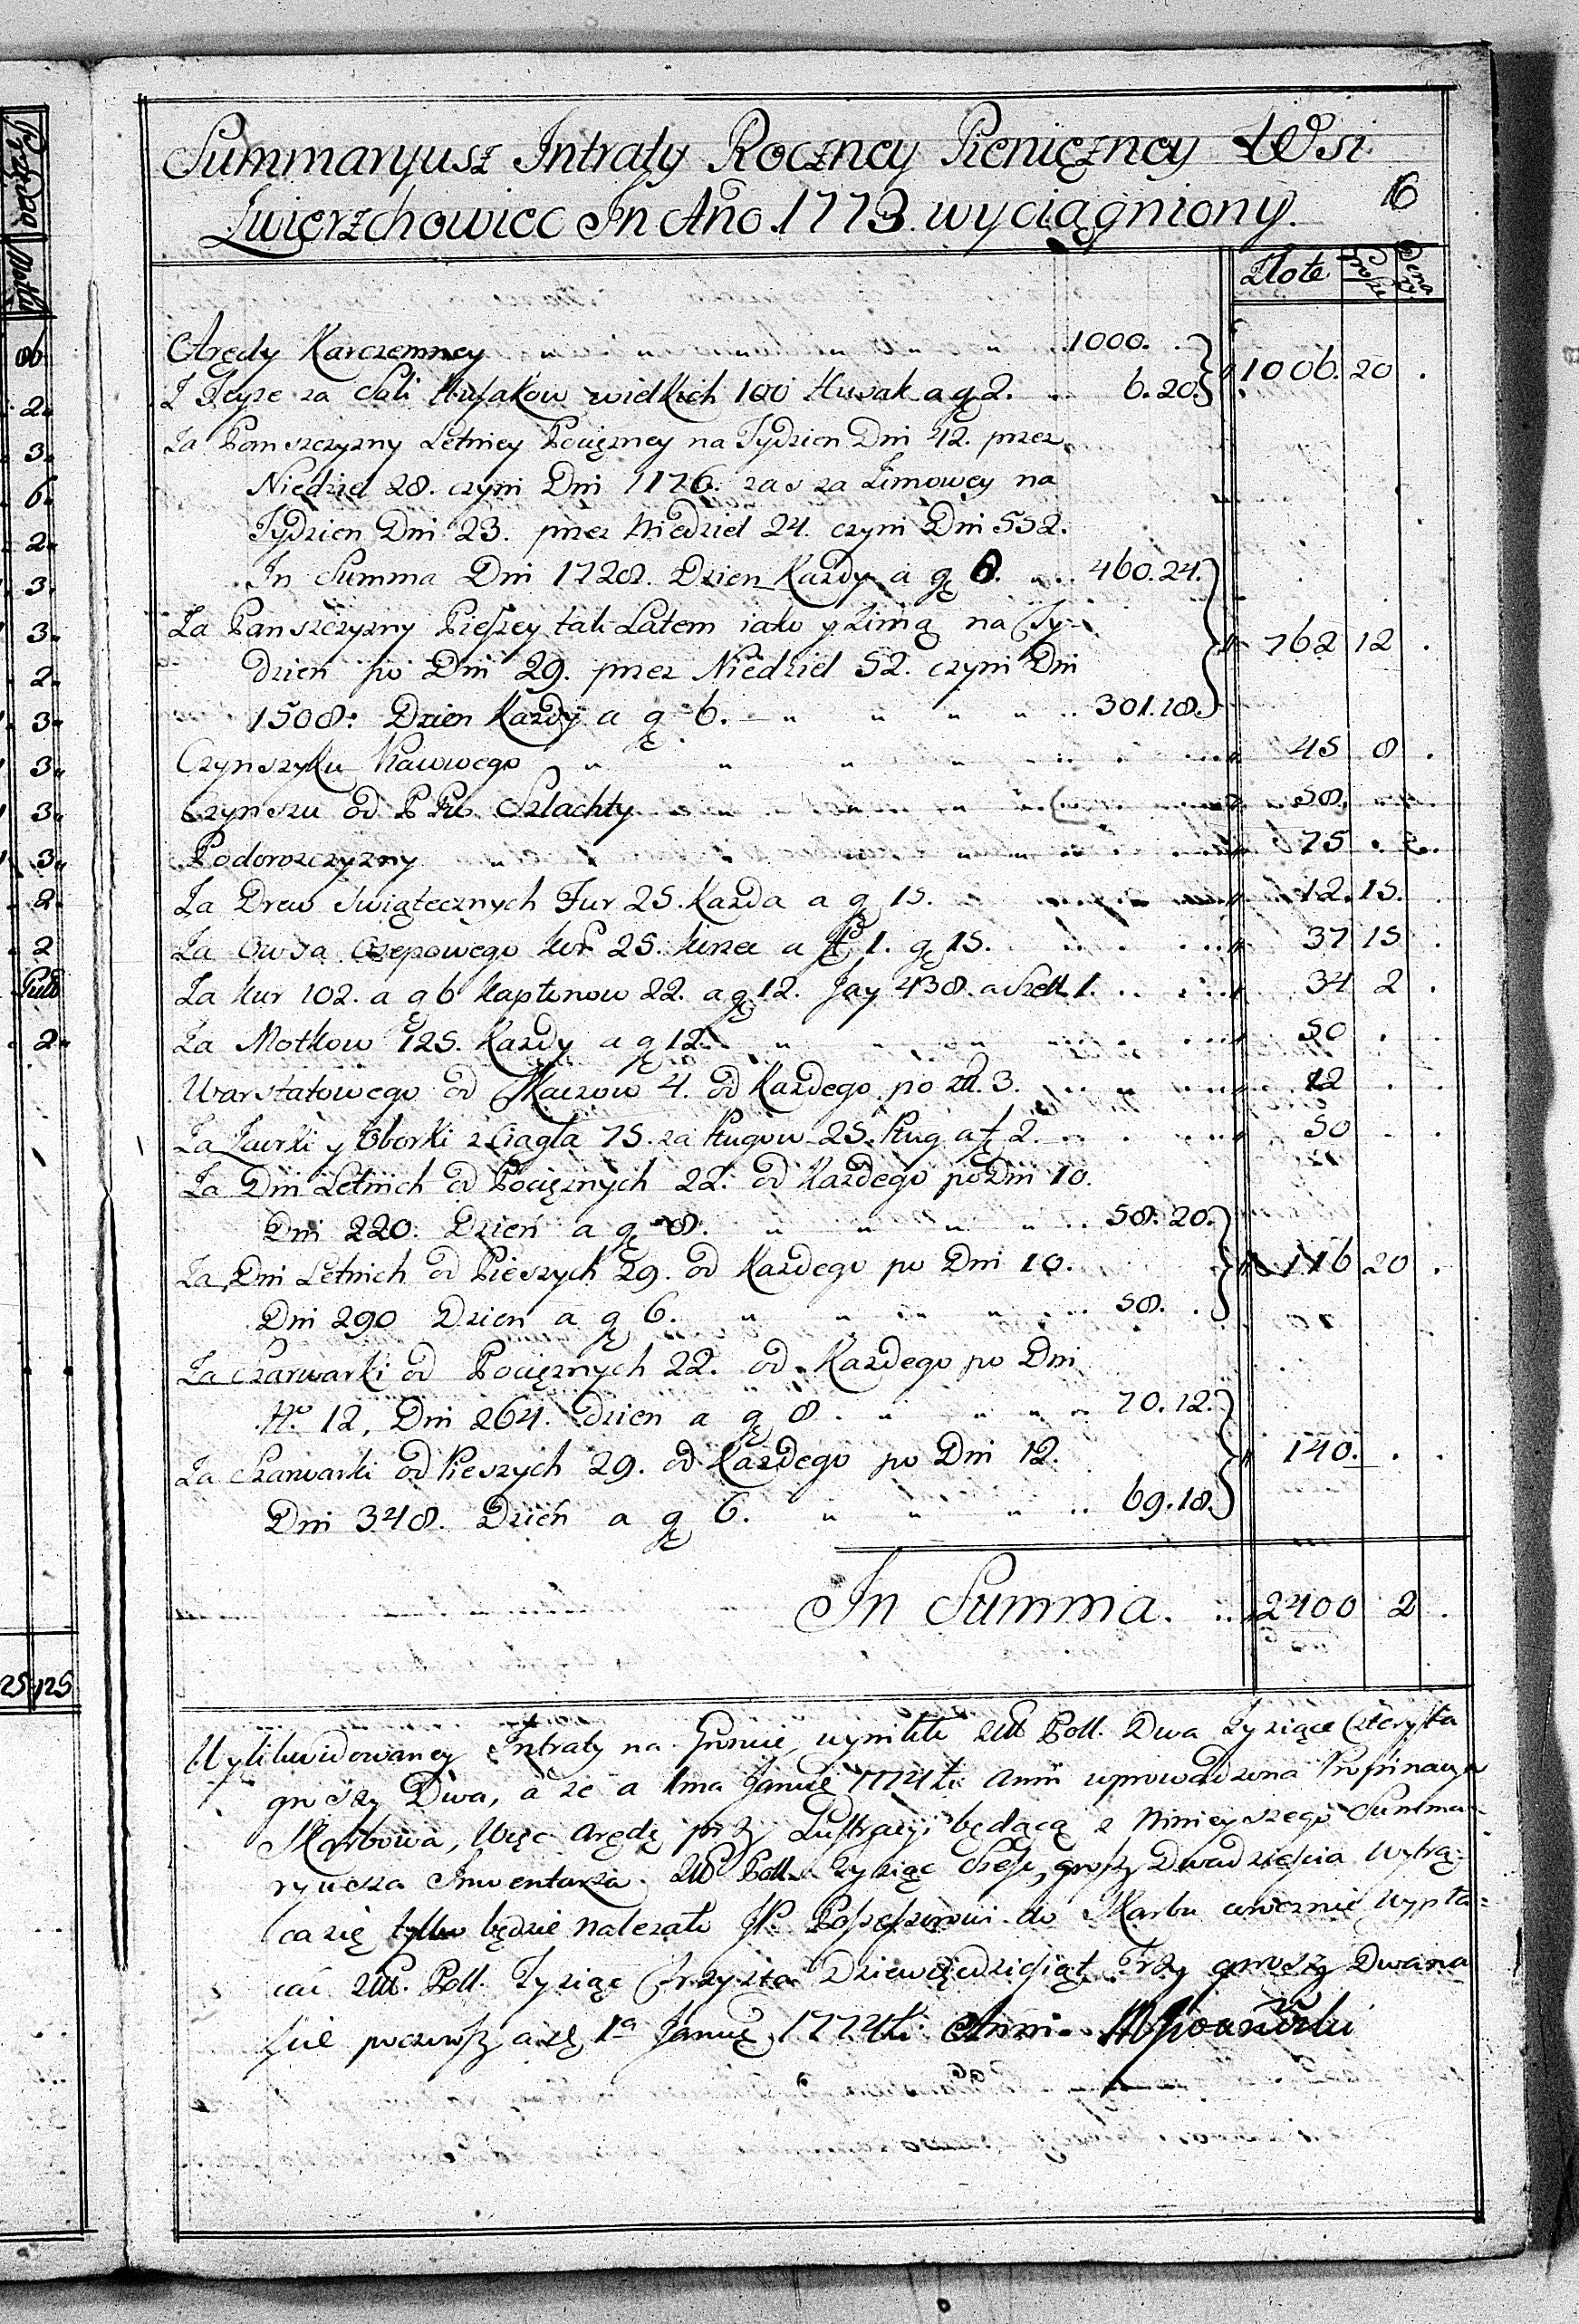 Summaryusz Intraty Roczney Pienięzney Wsi
Zwięrzchowiec In Año 1773. wyciągniony.
16
Złote Grosze Dena ry
Arędy Karczemney 1000.
Z Teyze za Soli Husakow wielkich 100 Husak a gr 2. 6.20. 1006. 20
Za Panszczyzny Letniey Pocięzney na Tydzien Dni 42. przez
Niedziel 28. czyni Dni 1176. zas za Zimowey na
Tydzien Dni 23. przez Niedziel 24. czyni Dni 552.
In Summa Dni 1728. Dzien Kazdy a gr 8. 460.24.
Za Panszczyzny Pieszey tak Latem iako y Zimą na Ty-
dzien po Dni 29. przez Niedziel 52. czyni Dni 762 12
1508: Dzien Kazdy a gr 6. 301.18.
Czynszyku 45 8
Czynszu od Szlachty 58.
Podorozczyzny 75
Za Drew Swiątecznych Fur 25. Kazda a gr 15. 12. 15.
Za Owsa Osepowego kor. 25. korzec a fl 1. gr 15. 37 15
Za Kur 102. a g 6 Kapłonow 22. a gr 12. Jay 438. a Szelł 1. 34 2
Za Motkow 125. Kazdy a gr 12. 50
Warstatowego od Tkaczow 4. od Kazdego po zł. 3. 12
Za Zaorki y Oborki z Ciągła 75. za Pługow 25. Pług a fl 2. 50
Za Dni Letnich od Pocięznych 22. od Kazdego po Dni 10.
Dni 220. Dzień a gr 8. 58. 20.
Za Dni Letnich od Pieszych 29. od Kazdego po Dni 10. 116 20
Dni 290 Dzien a gr 6. 58.
Za Szarwarki od Pocięznych 22. od Kazdego po Dni
No 12, Dni 264. dzien a gr 8. 70.12.
Za Szarwarki od Pieszych 29. od Kazdego po Dni 12. 140.
Dni 348. Dzień a gr 6. 69.18.
In Summa. 2400 2
Wylikwidowaney Intraty na Gruncie, wynikło Złł Poll. Dwa Tysiące Czterysta
groszy Dwa, a ze a 1ma Januę 1774ti Anni uprowadzona Propinacya
Skarbowa, Więc Arędę przy Lustracyi będącą z Ninieyszego Summa-
ryusza Inwentarza Złł Poll. Tysiąc Szesc, groszy Dwadziescia Wytrą-
ca się tylko będzie nalezało Possessorowi do Skarbu corocznie Wypła-
cac Złł. Poll. Tysiąc Trzysta Dziewięcdziesiąt Trzy groszy Dwana
scie począwszy a 1a Januę 1774ti Anni